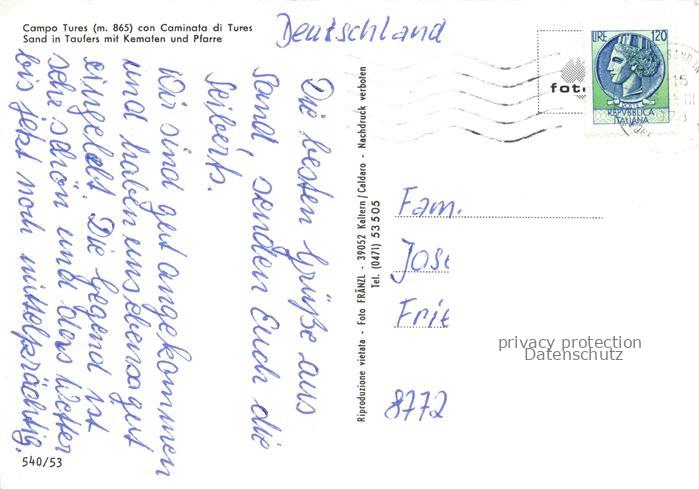 Campo Tures (m. 865) con Caminata di Tures
Sand in Taufers mit Kematen und Pfarre
Deutschland
LIRE 120
REPVBBLICA
ITALIANA
foto
Die besten Grüße aus
Sand, senden Euch die
Seiberts.
Wir sind gut angekommen
und haben uns ebensogut
eingelebt. Die Gegend ist
sehr schön und das Wetter
bis jetzt noch mittelprächtig.
Riproduzione vietata - Foto FRÄNZL - 39052 Kaltern/Caldaro - Nachdruck verboten
Tel. (0471) 53505
Fam.
Jose
Frie
8772
privacy protection
Datenschutz
540/53